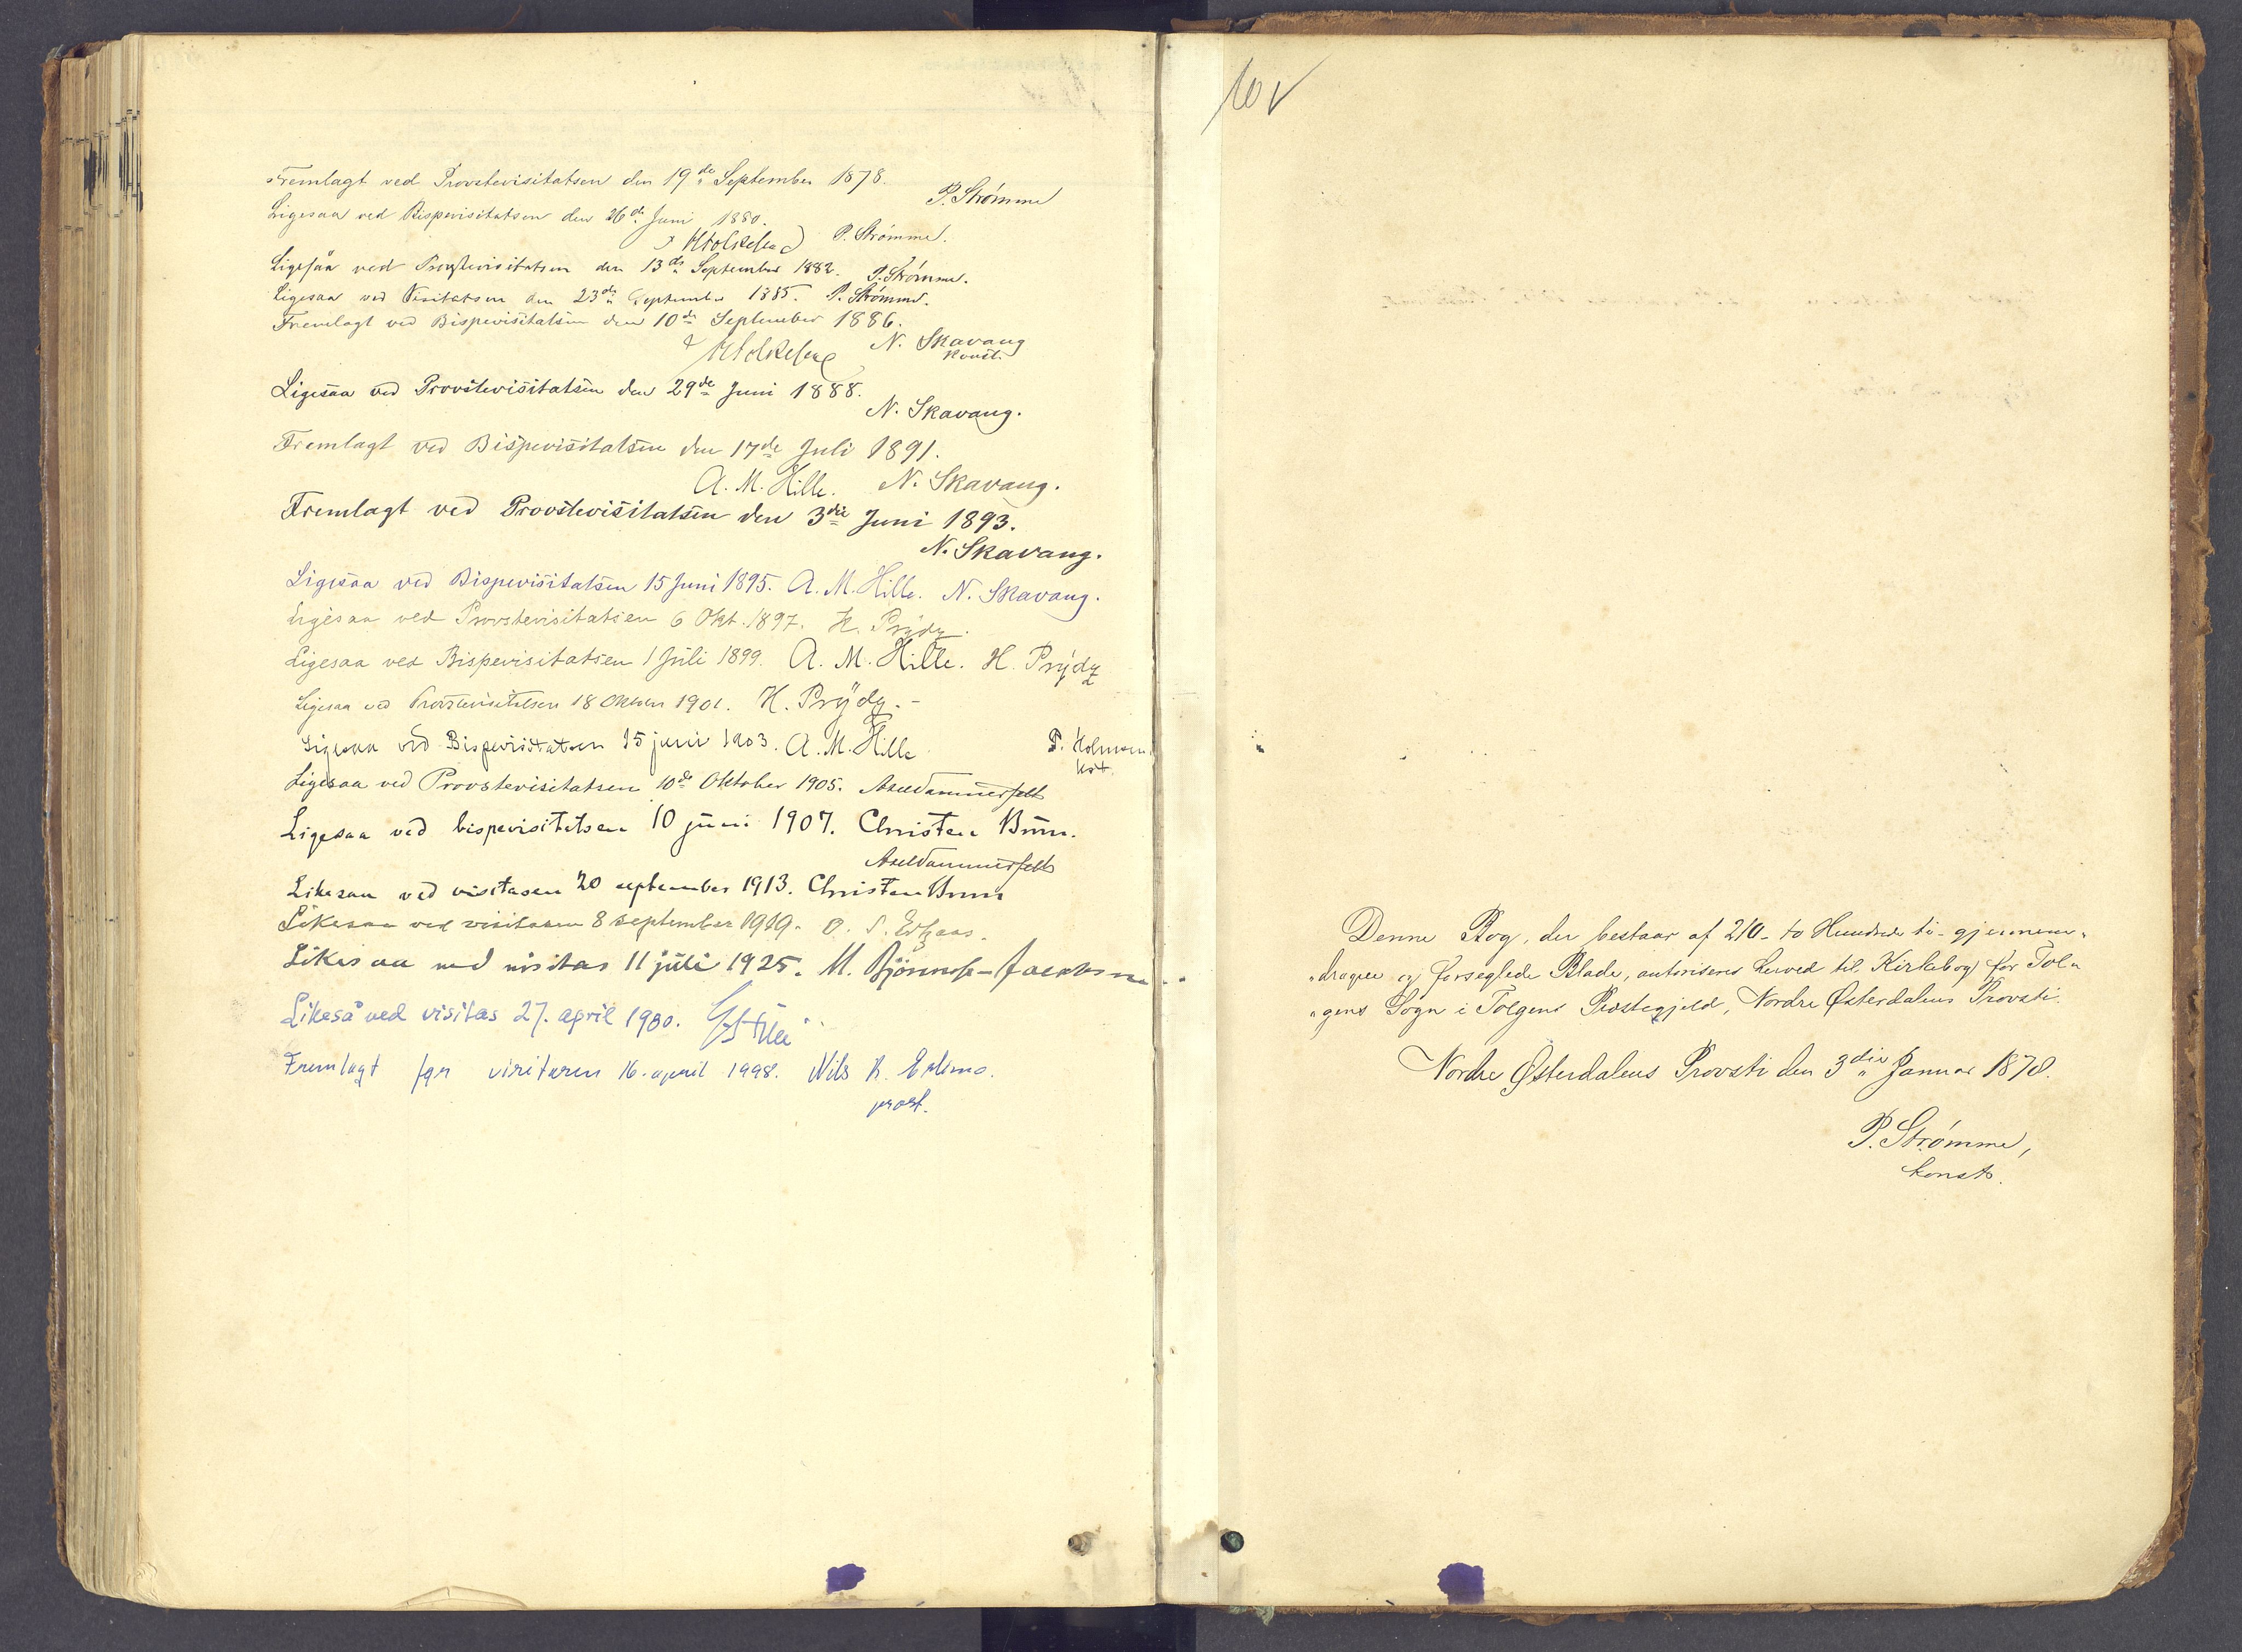 Fremlagt ved Provstevisitatsen den 19de September 1878.
P. Strømme
Ligesaa ved Bispevisitatsen den 26de Juni 1880.
P. Strømme.
Ligesaa ved Provstevisitatsen den 13de September 1882. P. Strømme.
Ligesaa ved Visitatsen den 23de September 1885. P. Strømme.
Fremlagt ved Bispevisitatsen den 10de September 1886.
N. Skavang
konst.
Ligesaa ved Provstevisitatsen den 29de Juni 1888.
N. Skavang.
Fremlagt ved Bispevisitatsen den 17de Juli 1891.
A. M. Hille. N. Skavang.
Fremlagt ved Provstevisitatsen den 3die Juni 1893.
N. Skavang.
Ligesaa ved Bispevisitatsen 15 Juni 1895. A. M. Hille. N. Skavang.
Ligesaa ved Provstevisitatsen 6 Okt. 1897. H. Prydz.
Ligesaa ved Bispevisitatsen 1 Juli 1899. A. M. Hille. H. Prydz
Ligesaa ved Provstevisitatsen 18 Oktober 1901. H. Prydz.-
Ligesaa ved Bispevisitatsen 15 juni 1903. A. M. Hille. P. Holmsen.
kst.
Ligesaa ved Provstevisitatsen 10de Oktober 1905.
Ligesaa ved bispevisitatsen 10 juni 1907. Christen Brun.
Likesaa ved visitasen 20 september 1913. Christen Brun
Likesaa ved visitasen 8 september 1919.
Likesaa ved visitas 11 juli 1925. M. Bjönness-Jacobsen
Likeså ved visitas 27. april 1980.
Fremlagt for visitasen 16. april 1998. Nils
prost.
10 V
Denne Bog, der bestaar af 210 - to Hundrede ti - gjennem-
"dragne og forseglede Blade, autoriseres herved til Kirkebog for Tol"
"gens Sogn i Tolgens Præstegjeld, Nordre Østerdalens Provsti.
Nordre Østerdalens Provsti den 3die Januar 1878.
P. Strømme,
konst.